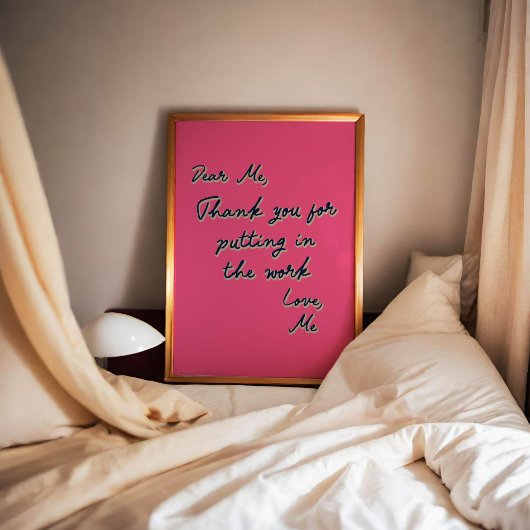 Dear Me,
Thank you for
putting in
the work
Love,
Me